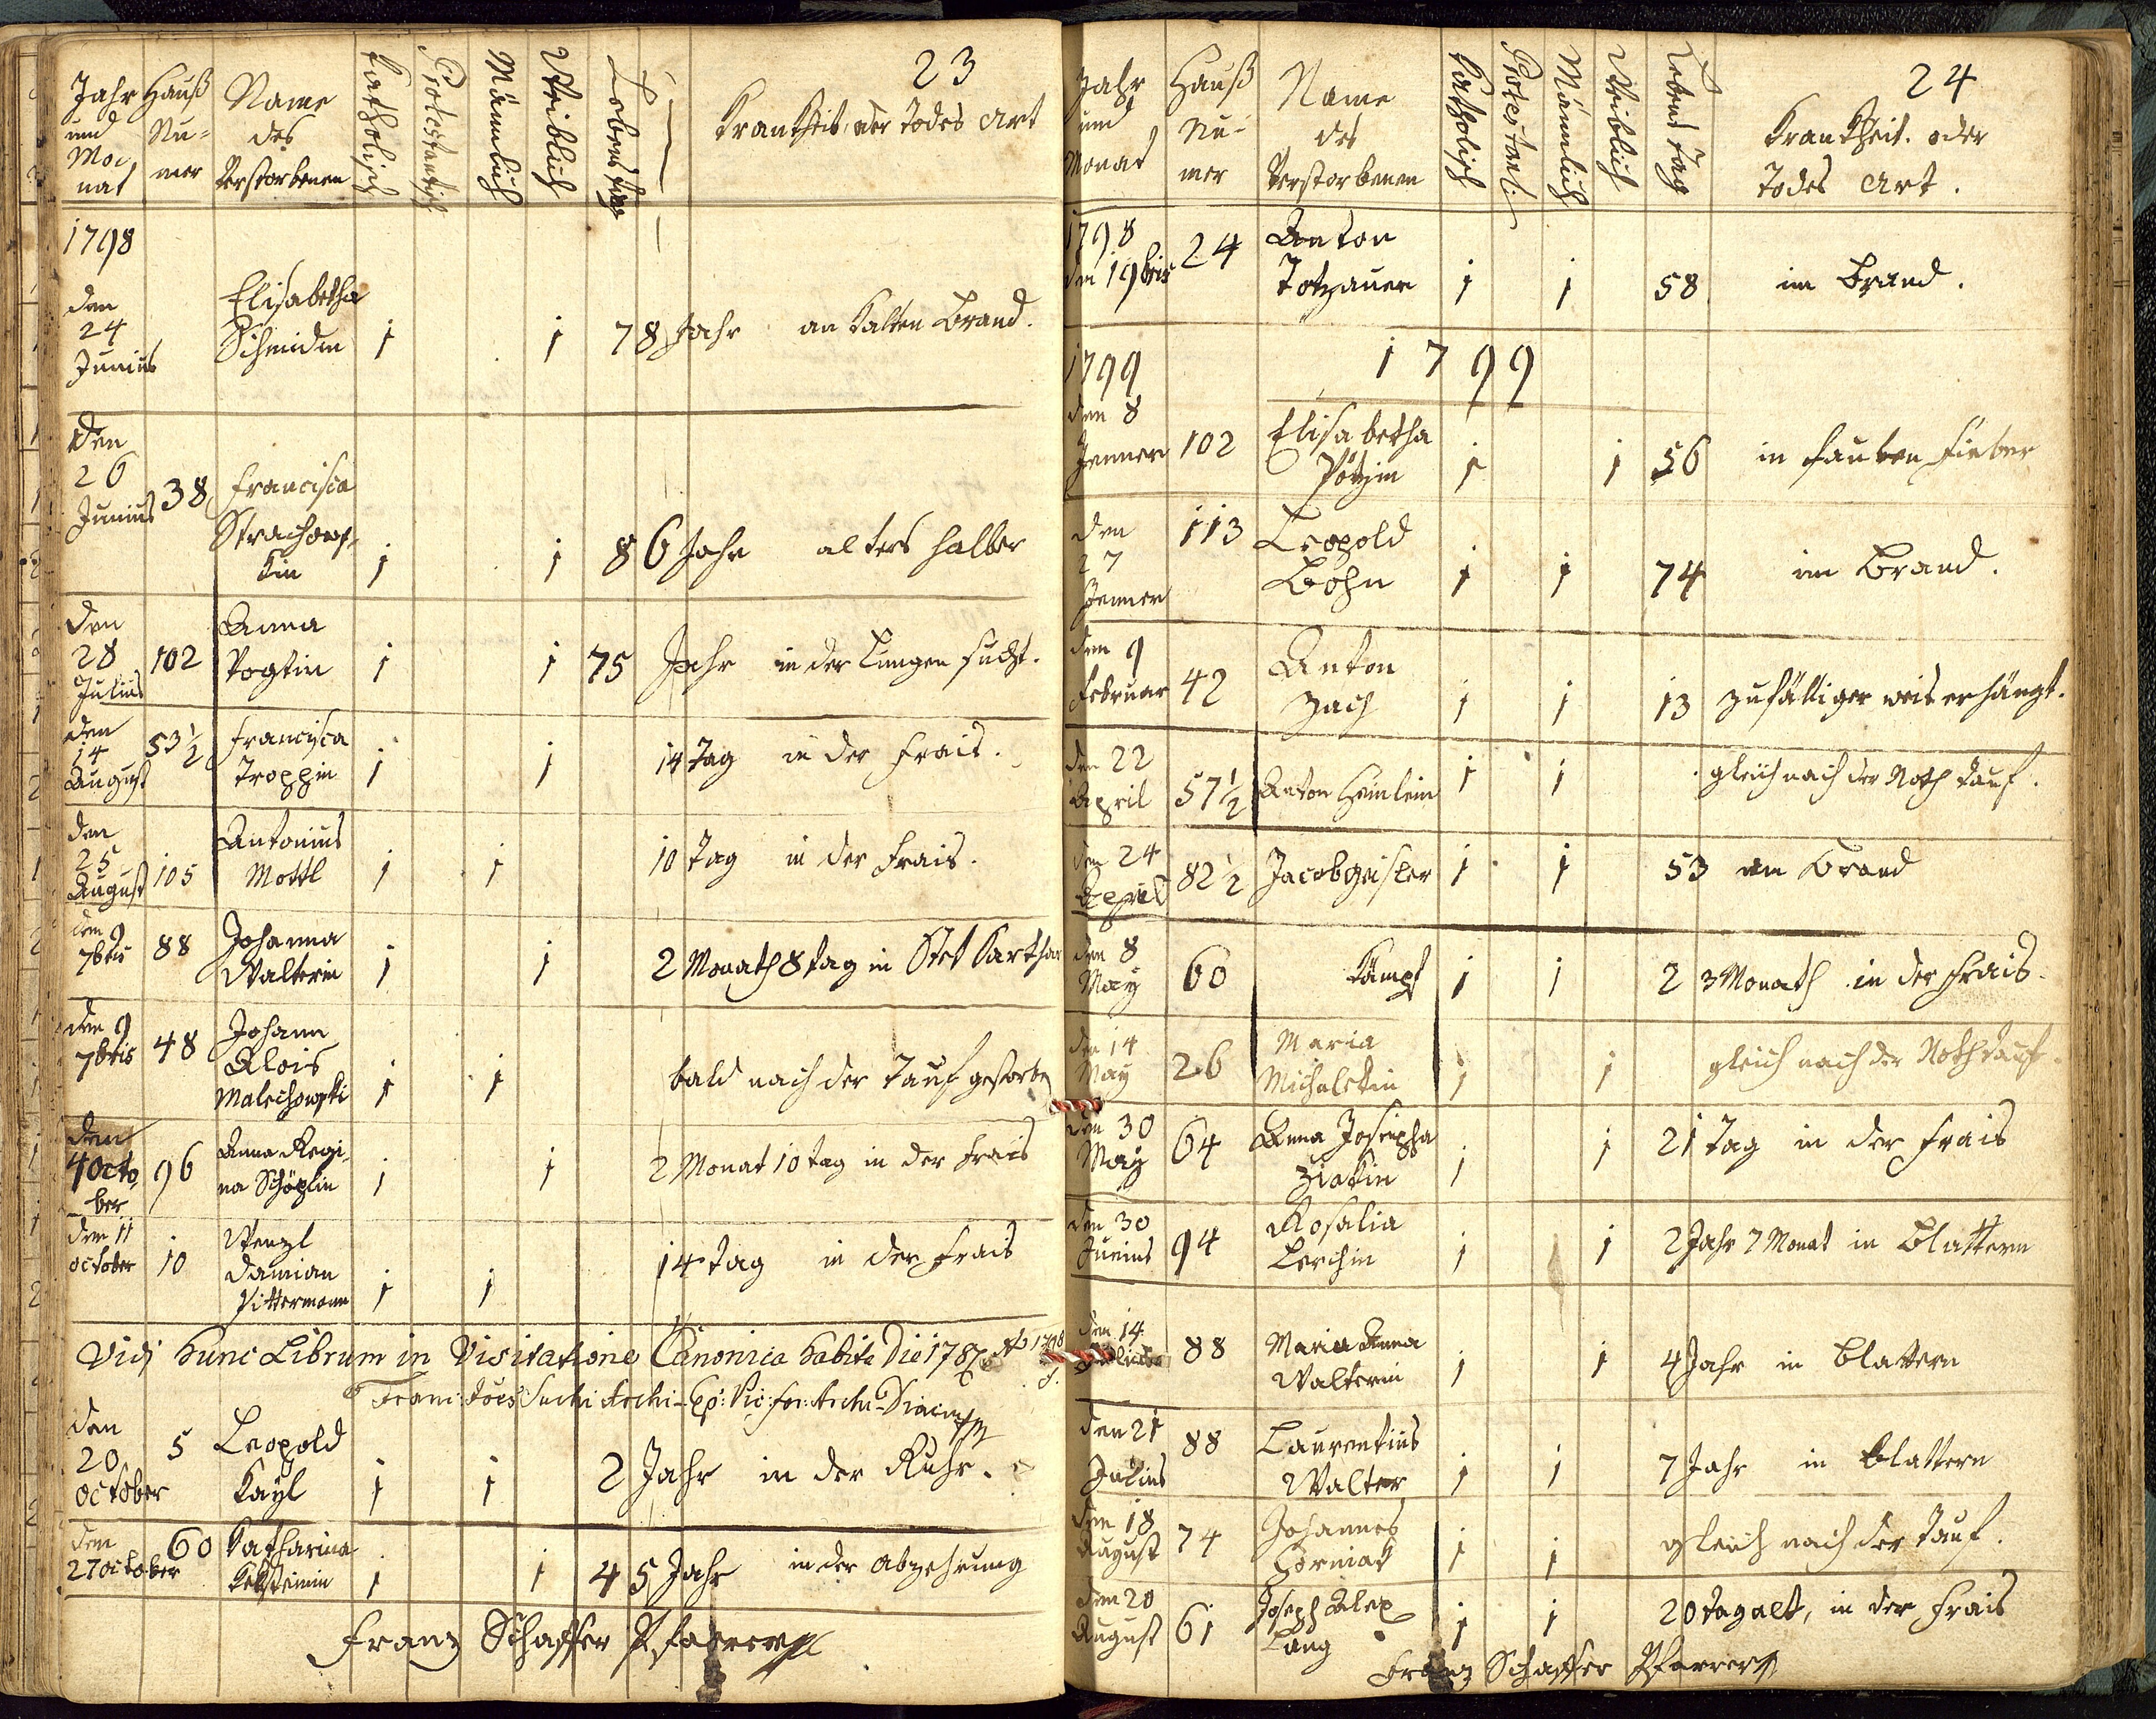 23
Jahr und Monat
Hauß Nu=mer
Name des Verstorbenen
Katholisch
Protestantisch
Männlich
Weiblich
Lebens tag
Krankheit, oder Todes Art
1798
den 24 Junius Elisabetha Schmidin 1 1 78 Jahr an kalten Brand.
den 26 Junius 38 Francisca Strachowskin 1 1 86 Jahr alters halber
den 28 Julius 102 Anna Vogtin 1 1 75 Jahr in der Lungen sucht.
den 14 August 53 1/2 Francisca Troppin 1 1 14 Tag in der Frais.
den 25 August 105 Antonius Mottl 1 1 10 Tag in der Frais.
den 9 7bris 88 Johanna Walterin 1 1 2 Monath 8 tag in
den 9 7bris 48 Johann Alois Malechowski 1 1 bald nach der Tauf gestorben
den 4 October 96 Anna Regina Schöplin 1 1 2 Monat 10 tag in der Frais
den 11 october 10 Wenzl Damian Pittermann 1 1 14 tag in der Frais
Vidi hunc Librum in Visitatione Canonica habita Die 17 8bris Ao 1798
den 20 october 5 Leopold Kayl 1 1 2 Jahr in der Ruhr.
den 27 october 60 Katharina 1 1 45 Jahr in der Abzehrung
Franz Schaffer Pfarrer
24
Jahr und Monat
Hauß Nu=mer
Name des Verstorbenen
Katholisch
Protestanti:
Männlich
Weiblich
Lebens Tag
Krankheit. oder Todes Art.
1798
den 1 9bris 24 Anton Totzauer 1 1 58 im Brand.
1799
1799
den 8 Jenner 102 Elisabetha Pötzin 1 1 56 in faulen Fieber
den 27 Jenner 113 Leopold Böhn 1 1 74 im Brand.
den 9 Februar 42 Anton Zach 1 1 13 zufälliger weis erhängt.
den 22 April 57 1/2 Anton Heinlein 1 1 gleich nach der Noth Tauf.
den 24 April 82 1/2 Jacob Geisler 1 1 53 am Brand
den 8 May 60 Kämpf 1 1 2 3 Monath in der Frais.
den 14 May 26 Maria Michalekin 1 1 gleich nach der Nothtauf.
den 30 May 64 Anna Josepha Ziakin 1 1 21 Tag in der Frais
den 30 Junius 94 Rosalia Lerchin 1 1 2 Jahr 7 Monat in Blattern
den 14 Julius 88 Maria Anna Walterin 1 1 4 Jahr in Blattern
den 21 Julius 88 Laurentius Walter 1 1 7 Jahr in Blattern
den 18 August 74 Johannes 1 1 gleich nach der Tauf.
den 20 August 61 Joseph Alex Lang 1 1 20 tag alt, in der Frais
Franz Schaffer Pfarrer